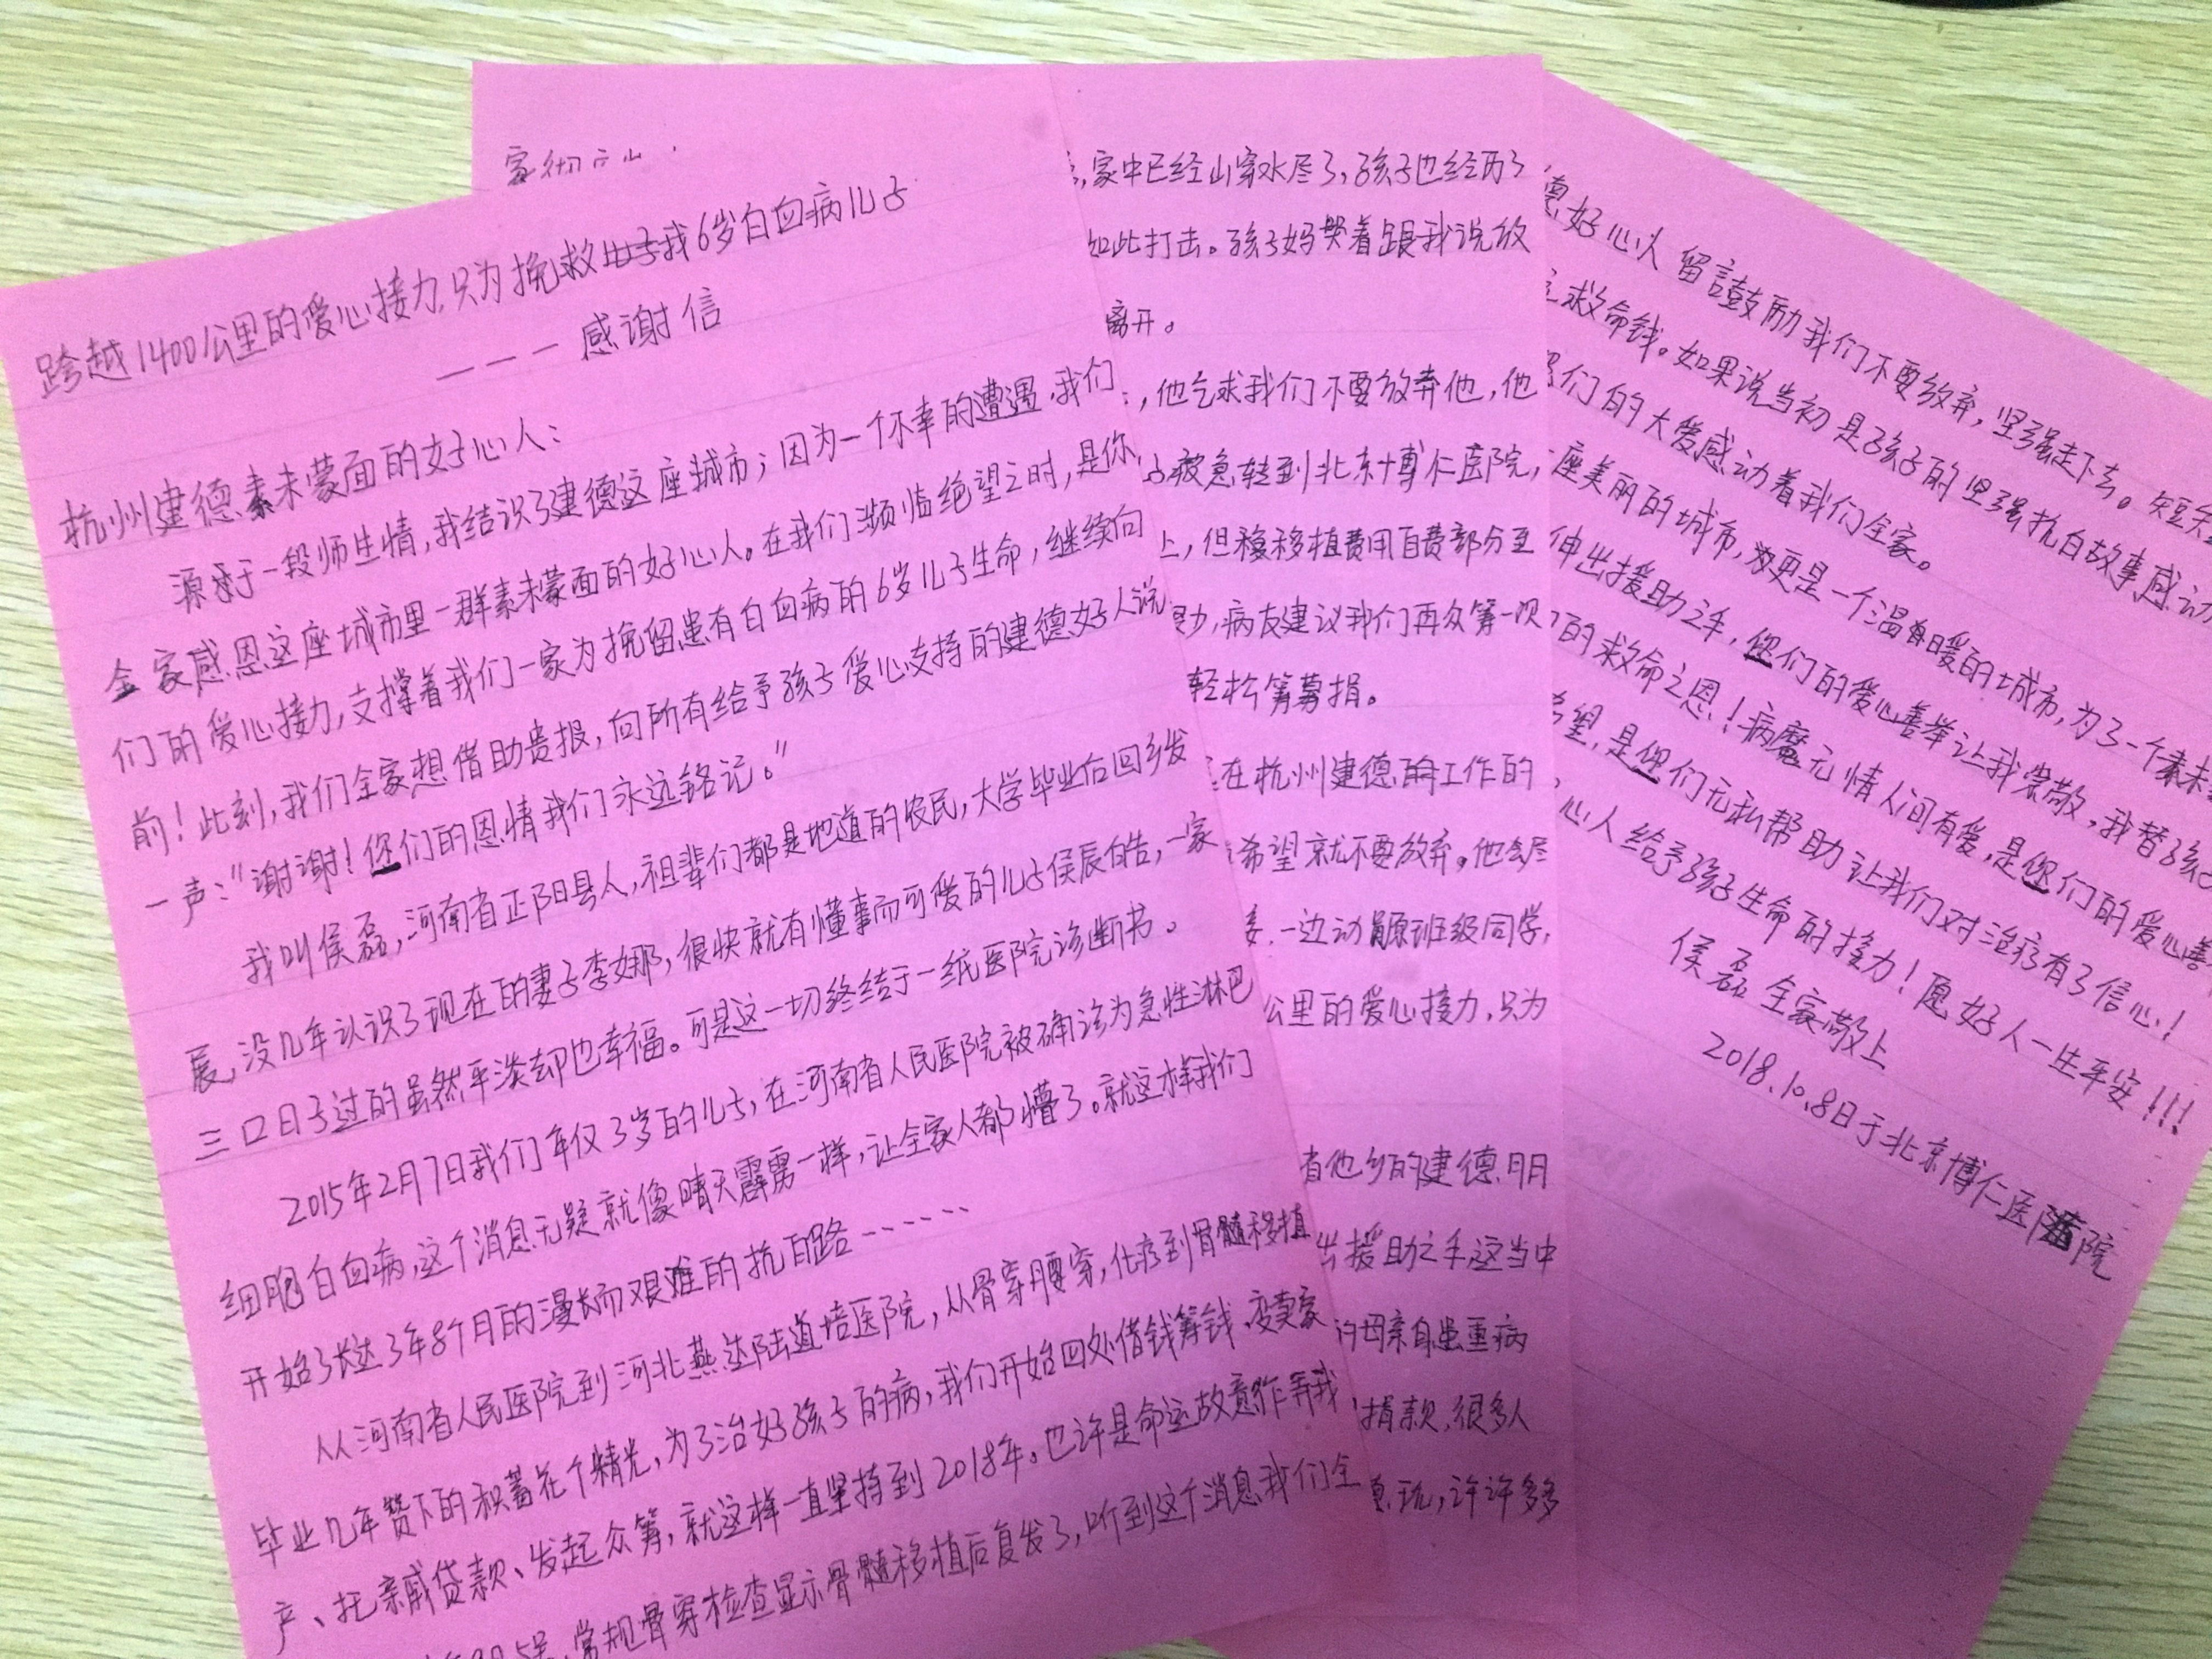 跨越1400公里的爱心接力,只为挽救我6岁白血病儿子
———感谢信
杭州建德素未蒙面的好心人：
源于一段师生情,我结识了建德这座城市；因为一个不幸的遭遇,我们
全家感恩这座城市里一群素未蒙面的好心人。在我们濒临绝望之时,是你
们的爱心接力,支撑着我们一家为挽留患有白血病的6岁儿子生命,继续向
前！此刻,我们全家想借助贵报,向所有给予孩子爱心支持的建德好人说
一声："谢谢！您们的恩情我们永远铭记。"
我叫侯磊,河南省正阳县人,祖辈们都是地道的农民,大学毕业后回乡发
展,没几年认识了现在的妻子李娜,很快就有懂事而可爱的儿子侯辰皓,一家
三口日子过的虽然平淡却也幸福。可是这一切终结于一纸医院诊断书。
2015年2月7日我们年仅3岁的儿子,在河南省人民医院被确诊为急性淋巴
细胞白血病,这个消息无疑就像晴天霹雳一样,让全家人都懵了。就这样我们
开始了长达3年8个月的漫长而艰难的抗白路……
从河南省人民医院到河北燕达陆道培医院,从骨穿腰穿,化疗到骨髓移植
毕业几年赞下的积蓄花个精光,为了治好孩子的病,我们开始四处借钱筹钱、变卖家
产、托亲戚贷款、发起众筹,就这样一直坚持到2018年。也许是命运故意作弄我
常规骨穿检查显示骨髓移植后复发了,听到这个消息我们全
,家中已经山穷水尽了,孩子也经历了
如此打击。孩子妈哭着跟我说放
离开。
,他乞求我们不要放弃他,他
救急转到北京博仁医院,
上,但移植费用自费部分至
助,病友建议我们再众筹一次
轻松筹募捐。
在杭州建德工作的
希望就不要放弃。他会尽
一边动员原班级同学,
公里的爱心接力,只为
着他乡的建德朋
出援助之手,这当中
的母亲身患重病
捐款,很多人
玩,许许多多
德好心人留言鼓励我们不要放弃,坚强走下去。短短
救命钱。如果说当初是孩子的坚强抗白故事感动
们的大爱感动着我们全家。
座美丽的城市,更是一个温暖的城市,为了一个素未
伸出援助之手,您们的爱心善举让我崇敬,我替孩子
的救命之恩！病魔无情人间有爱,是您们的爱心善
希望,是您们无私帮助让我们对治疗有了信心！
心人给予孩子生命的接力！愿好人一生平安！！！
侯磊全家敬上
2018.10.8日于北京博仁医院